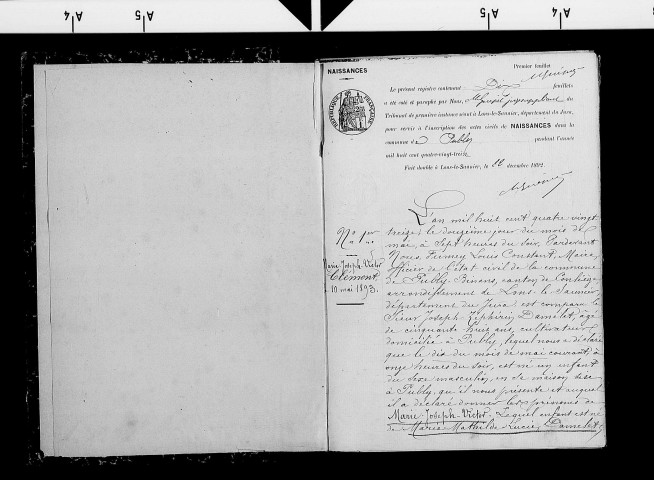 A 4
A 5
A 5
A 4
NAISSANCES
Premier feuillet
Le présent registre contenant Dix feuillets
a été coté et paraphé par Nous, juge suppléant du
Tribunal de première instance séant à Lons-le-Saunier, département du Jura,
pour servir à l'inscription des actes civils de NAISSANCES dans la
commune de Publy pendant l'année
mil huit cent quatre-vingt-treize
Fait double à Lons-le-Saunier, le décembre 1892
RÉPUBLIQUE FRANÇAISE
No 1er
Marie-Joseph-Victor
Clément
10 mai 1893.
L'an mil huit cent quatre vingt
treize, le douzième jour du mois de
mai, à sept heures du soir, Pardevant
Nous, Louis Constant, Maire,
Officier de l'état civil de la commune
de Publy, Binans, canton de Conliège
arrondissement de Lons le Saunier
département du Jura est comparu le
Sieur Joseph Zéphirin Damelet, âgé
de cinquante huit ans, cultivateur
domicilié à Publy, lequel nous a déclaré
que le dix du mois de mai courant, à
onze heures du soir, est né un enfant
du sexe masculin, en sa maison sise
à Publy, qu'il nous présente et auquel
il a déclaré donner les prénoms de
Marie-Joseph-Victor. Lequel enfant est né
de Marie Mathilde Lucie Damelet,